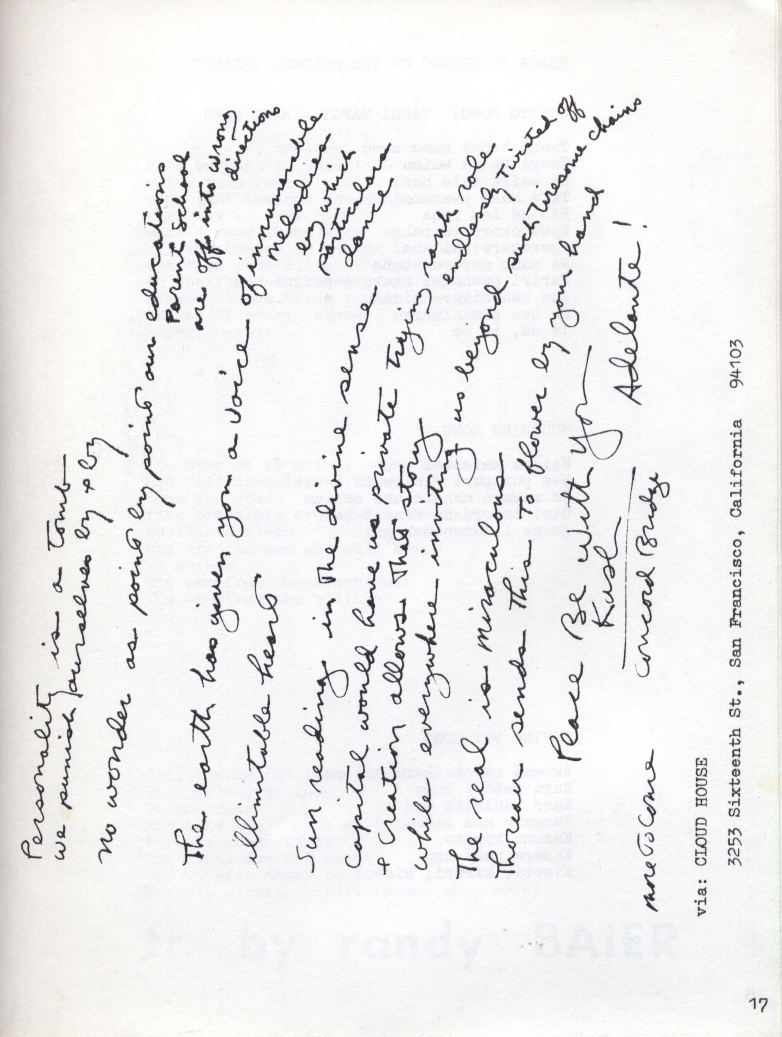 Personality is a tomb
we punish ourselves by & by
No wonder as point by point our educations
Parent School
are offs into wrong
directions
The earth has given you a voice of innumerable
melodies
illimitable heart
by which
particulars
dance
Sun reading in the dime sense
Capital would have us captivate trying rank role
& Creation allows This story
while everywhere inviting us beyond such tiresome chains
The real is miraculous
Thoreau sends This To flower by yr hand
Peace Be With You
Kush
Adelante!
Concord Bridge
more To Come
via: CLOUD HOUSE
3253 Sixteenth St., San Francisco, California 94103
17